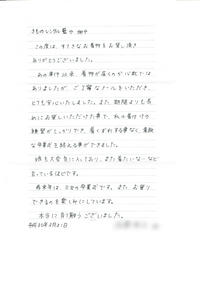 きものレンタル 藍や 御中
この度は、すてきなお着物をお貸し頂き
ありがとうございました。
あの事件以来、着物が届くのか心配では
ありましたが、ご丁寧なメールをいただき、
とても安心いたしました。また、期間よりも長
めにお貸しいただけた事で、私の着付け
練習がしっかりでき、着くずれする事なく、素敵
な卒業式を終える事ができました。
娘も大変気に入っており、また着たいな〜など
言っているほどです。
再来年は、次女の卒業式です。また、お借り
できるのを楽しみにしています。
本当に有り難うございました。
平成30年3月21日